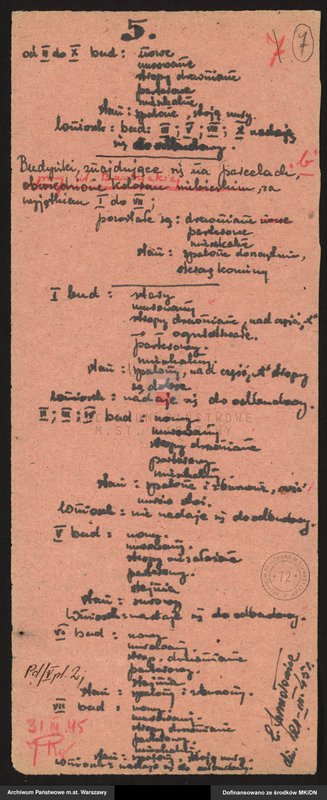 5.
7
od II do X bud: nowe
murowane
stropy drewniane
parterowe
mieszkalne
stan: spalone, stoją mury.
Wniosek: bud: III; V; VII; X nadają
się do odbudowy.
Budynki, znajdujące się na parcelach, "b"
obwiednione kolorem niebieskim, za
wyjątkiem I do VII;
pozostałe są: drewniane nowe
parterowe
mieszkalne
stan: spalone doszczętnie,
sterczą kominy
I bud: stary
murowany
stropy drewniane, nad częścią "k"
ogniotrwałe.
parterowy.
mieszkalny.
stan: spalony, nad częścią "k" stropy
są dobre.
Wniosek: nadaje się do odbudowy.
II; III; IV bud: nowy
murowany
stropy drewniane
parterowy
mieszkalny
stan: spalone i zburzone, część
murów stoi.
Wniosek: nie nadaje się do odbudowy.
V bud: nowy
murowany.
stropy
parterowy.
stajnia
stan: surowy
Wniosek: nadaje się do odbudowy.
VI bud: nowy
murowany
strop. drewniane
parterowy
stajnia
stan: spalony i zburzony.
VII bud: nowy
murowany
stropy drewniane
parterowy
mieszkalny
stan: spalony, stoją mury.
Wniosek: nadaje się do odbudowy.
Pd/V pl. 2
31.III.45
72
ARCHIWUM PAŃSTWOWE
M.ST. WARSZAWY
Archiwum Państwowe m.st. Warszawy
Dofinansowano ze środków MKiDN